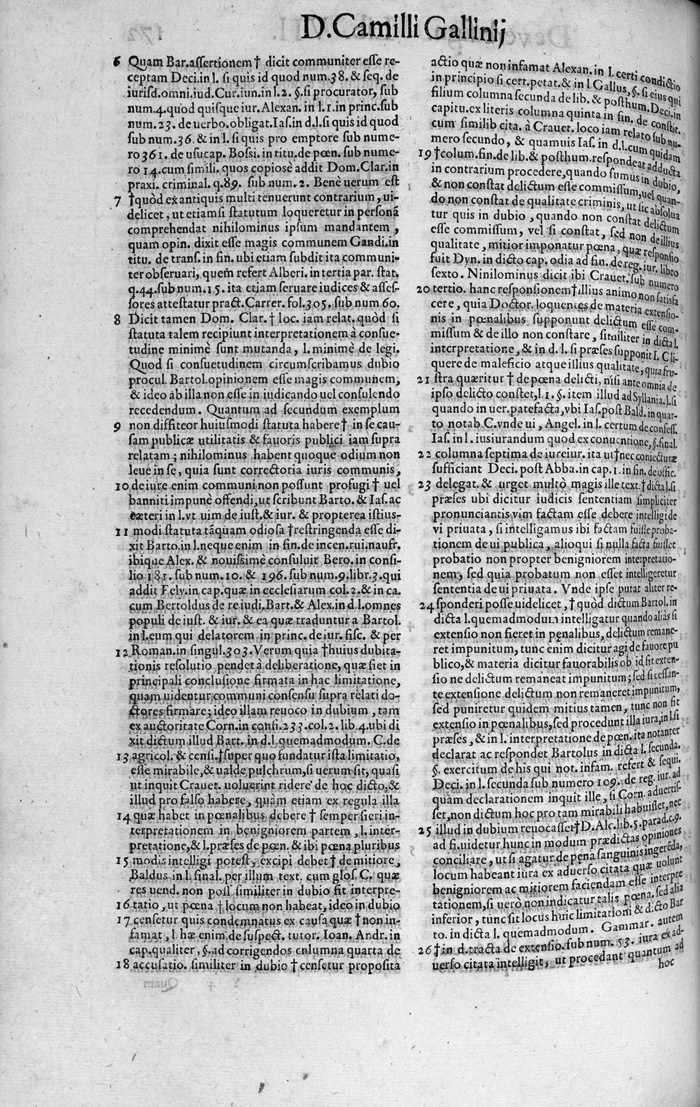 D. Camilli Gallinij
6 Quam Bar. assertionem † dicit communiter esse re-
ceptam Deci. in l. si quis id quod num. 38. & seq. de
iurisd. omni. iud. Cur. iun. in l. 2. §. si procurator, sub
num. 4. quod quisque iur. Alexan. in l. 1. in princ. sub
num. 23. de uerbo. obligat. Ias. in d. l. si quis id quod
sub num. 36. & in l. si quis pro emptore sub nume-
ro 361. de usucap. Bossi. in titu. de pœn. sub nume-
ro 14. cum simili. quos copiosè addit Dom. Clar. in
praxi. criminal. q. 89. sub num. 2. Benè uerum est
7 †quòd ex antiquis multi tenuerunt contrarium, ui-
delicet, ut etiam si statutum loqueretur in personã
comprehendat nihilominus ipsum mandantem,
quam opin. dixit esse magis communem Gandi. in
titu. de trans. in fin. ubi etiam subdit ita communi-
ter obseruari, quem refert Alberi. in tertia par. stat.
q. 44. sub num. 15. ita etiam seruare iudices & asses-
sores attestatur pract. Carrer. fol. 305. sub num 60.
8 Dicit tamen Dom. Clar. † loc. iam relat. quòd si
statuta talem recipiunt interpretationem à consue-
tudine minimè sunt mutanda, l. minimè de legi.
Quod si consuetudinem circumscribamus dubio
procul Bartol. opinionem esse magis communem,
& ideo ab illa non esse in iudicando uel consulendo
recedendum. Quantum ad secundum exemplum
9 non diffiteor huiusmodi statuta habere † in se cau-
sam publicæ utilitatis & fauoris publici iam supra
relatam; nihilominus habent quoque odium non
leue in se, quia sunt correctoria iuris communis,
10 de iure enim communi non possunt profugi † uel
banniti impunè offendi, ut scribunt Barto. & Ias. ac
cæteri in l. vt uim de iust. & iur. & propterea istius-
11 modi statuta tãquam odiosa †restringenda esse di-
xit Barto. in l. neque enim in fin. de incen. rui. naufr.
ibique Alex. & nouissimè consuluit Bero. in consi-
lio 181. sub num. 10. & 196. sub num. 9. libr. 3. qui
addit Fely. in cap. quæ in ecclesiarum col. 2. & in ca.
cum Bertoldus de re iudi. Bart. & Alex. in d. l. omnes
populi de iust. & iur. & ea quæ traduntur a Bartol.
in l. eum qui delatorem in princ. de iur. fisc. & per
12 Roman. in singul. 303. Verum quia †huius dubita-
tionis resolutio pendet à deliberatione, quæ fiet in
principali conclusione firmata in hac limitatione,
quam uidentur communi consensu supra relati do-
ctores firmare; ideo illam reuoco in dubium, tam
ex auctoritate Corn. in consi. 233. col. 2. lib. 4. ubi di
xit dictum illud Bart. in d. l. quemadmodum. C. de
13 agricol. & censi. †super quo fundatur ista limitatio,
esse mirabile, & ualde pulchrum, si uerum sit, quasi
ut inquit Crauet. uoluerint ridere de hoc dicto, &
illud pro falso habere, quàm etiam ex regula illa
14 quæ habet in pœnalibus debere † semper fieri in-
terpretationem in benigniorem partem, l. inter-
pretatione, & l. præses de pœn. & ibi pœna pluribus
15 modis intelligi potest, excipi debet † de mitiore,
Baldus in l. final. per illum text. cum glos. C. quæ
res uend. non poss. similiter in dubio fit interpre-
16 tatio, ut pœna † locum non habeat, ideo in dubio
17 censetur quis condemnatus ex causa quæ † non in-
famat, l hæ enim de suspect. tutor. Ioan. Andr. in
cap. qualiter, §. ad corrigendos columna quarta de
18 accusatio. similiter in dubio † censetur proposita
actio quæ non infamat Alexan. in l. certi condictio
in principio si cert. petat. & in l Gallus, §. si eius qui
filium columna secunda de lib. & posthum. Deci. in
capitu. ex literis columna quinta in fin. de constit.
cum similib cita. à Crauet. loco iam relato sub nu-
mero secundo, & quamuis Ias. in d. l. cum quidam
19 †colum. fin. de lib. & posthum. respondeat adducta
in contrarium procedere, quando sumus in dubio,
& non constat delictum esse commissum, uel quan-
do non constat de qualitate criminis, ut sic absolua
tur quis in dubio, quando non constat delictum
esse commissum, vel si constat, sed non de illius
qualitate, mitior imponatur pœna, quæ responsio
fuit Dyn. in dicto cap. odia ad fin. de reg. iur. libro
sexto. Ninilominus dicit ibi Crauet. sub numero
20 tertio. hanc responsionem †illius animo non satisfa
cere, quia Doctor. loquentes de materia extensio-
nis in pœnalibus supponunt delictum esse com-
missum & de illo non constare, similiter in dicta l.
interpretatione, & in d. l. si præses supponit I. C. li-
quere de maleficio atque illius qualitate, quia fru-
21 stra quæritur † de pœna delicti, nisi ante omnia de
ipso delicto constet, l. 1. §. item illud ad Syllania. l. si
quando in uer. patefacta, vbi Ias. post Bald. in quar-
to notab. C. vnde ui, Angel. in l. certum de confess.
Ias. in l. iusiurandum quod ex conuentione, §. final.
22 columna septima de iureiur. ita ut †nec coniecturæ
sufficiant Deci. post Abba. in cap. 1. in fin. de offic.
23 delegat. & urget multò magis ille text. † dicta l. si
præses ubi dicitur iudicis sententiam simpliciter
pronunciantis vim factam esse debere intelligi de
vi priuata, si intelligamus ibi factam fuisse proba-
tionem de ui publica, alioqui si nulla facta fuisset
probatio non propter benigniorem interpretatio-
nem, sed quia probatum non esset intelligeretur
sententia de ui priuata. Vnde ipse putat aliter re-
24 sponderi posse uidelicet, † quòd dictum Bartol. in
dicta l. quemadmodum intelligatur quando alias si
extensio non fieret in penalibus, delictum remane-
ret impunitum, tunc enim dicitur agi de fauore pu
blico, & materia dicitur fauorabilis ob id sit exten-
sio ne delictum remaneat impunitum; sed si cessan-
te extensione delictum non remaneret impunitum,
sed puniretur quidem mitius tamen, tunc non fit
extensio in pœnalibus, sed procedunt illa iura, in l. si
præses, & in l. interpretatione de pœn. ita notanter
declarat ac respondet Bartolus in dicta l. secunda.
§. exercitum de his qui not. infam. refert & sequi.
Deci. in l. secunda sub numero 109. de reg. iur. ad
quàm declarationem inquit ille, si Corn. aduertis-
set, non dictum hoc pro tam mirabili habuisset, nec
25 illud in dubium reuocasset †D. Alc. lib. 5. parad. c. 9.
ad si uidetur hunc in modum prædictas opiniones
conciliare, ut si agatur de pena sanguinis ingerẽda,
locum habeant iura ex aduerso citata quæ uolunt
benigniorem ac mitiorem faciendam esse interpre
tationem, si uerò non indicatur talis pœna, sed alia
inferior, tunc sit locus huic limitationi & d. cto Bar
to. in dicta l. quemadmodum. Gammar. autem
26 †in d. tracta de extensio. sub num. 53. iura ex ad-
uerso citata intelligit, ut procedant quantum ad
hoc